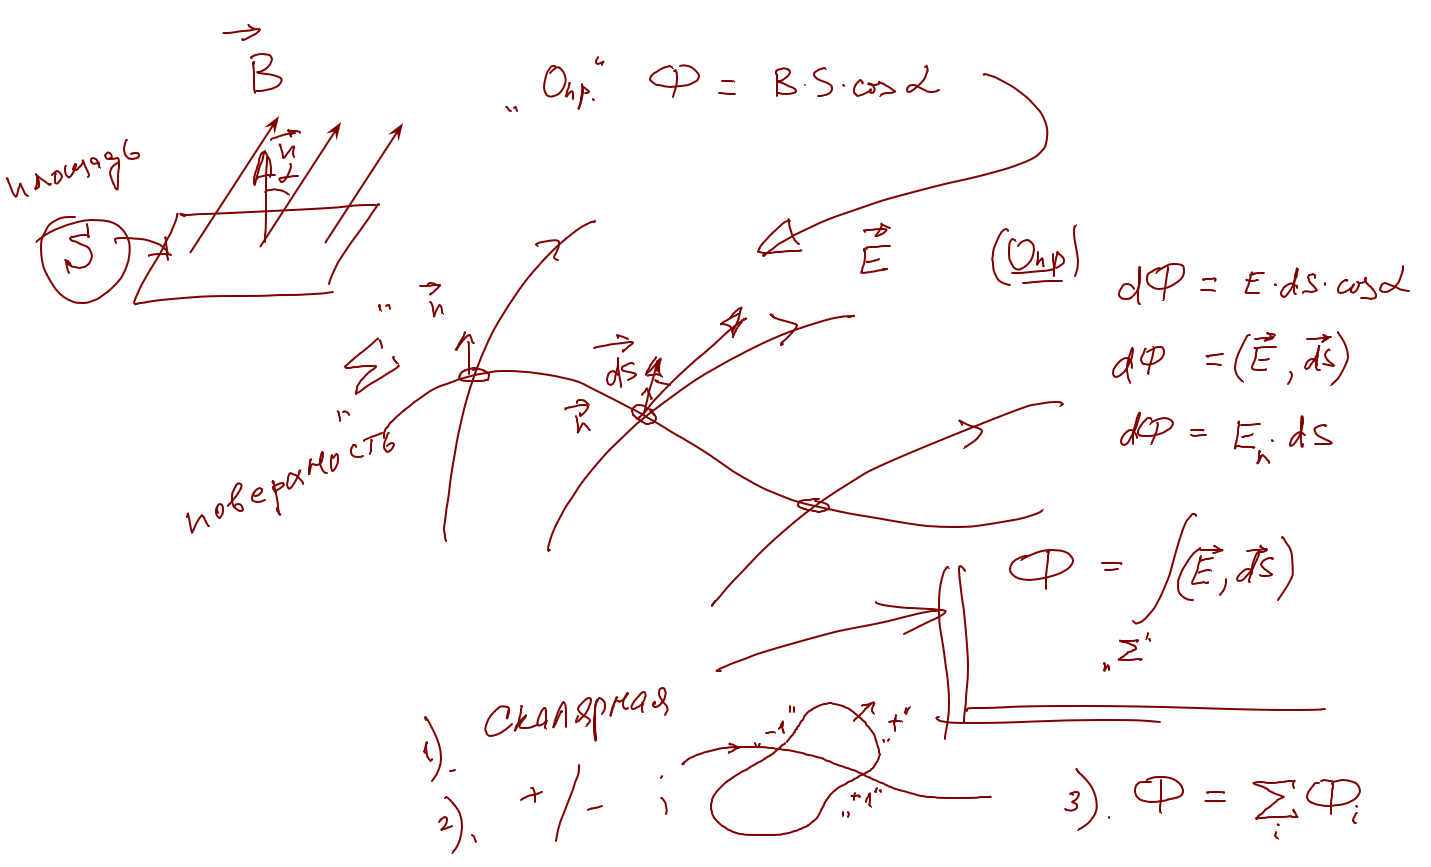 B⃗
„Опр.“ Φ = B·S·cosα
площадь
n⃗
α
S
E⃗
(Опр)
dΦ = E·ds·cosα
„Σ“
n⃗
dΦ = (E⃗, ds⃗)
ds⃗
n⃗
dΦ = Eₙ·ds
поверхность
Φ = ∫(E⃗, ds⃗)
„Σ“
1). Скалярная
2). + / - ;
„-1“
„+“
„+1“
3). Φ = Σ Φᵢ
i